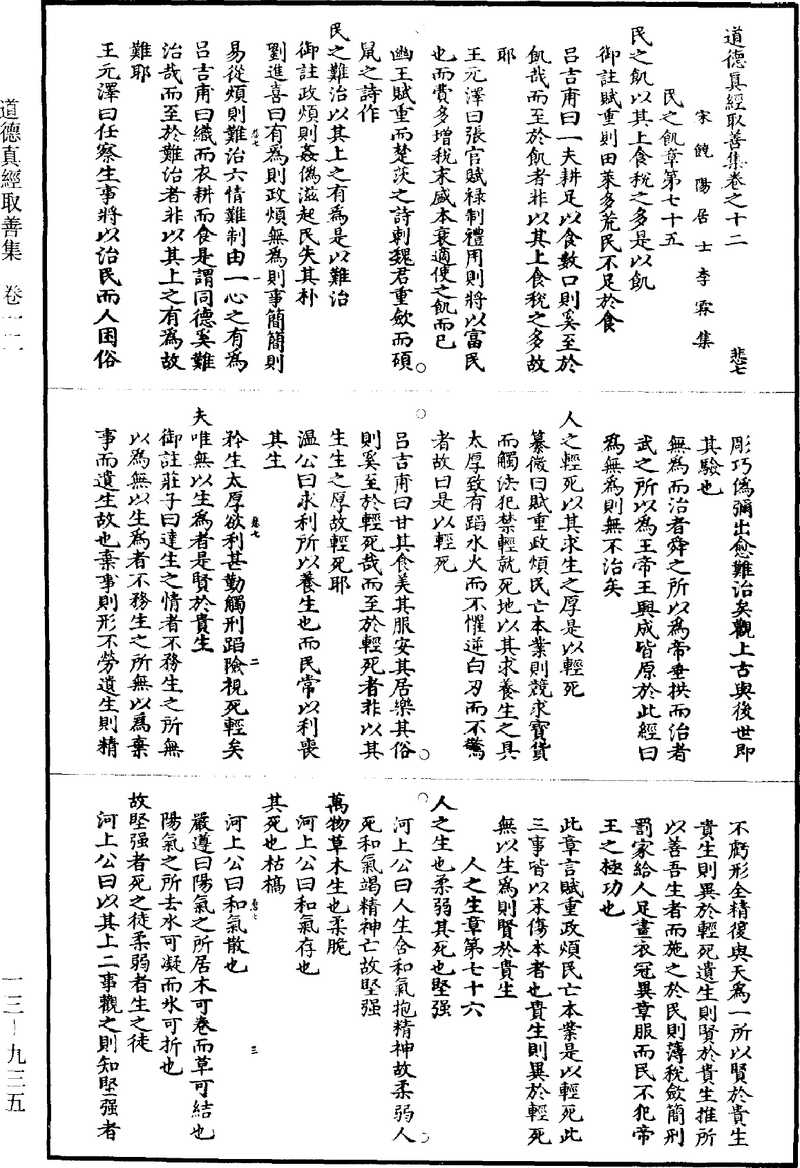 道德真經取善集卷之十二
悲七
宋饒陽居士李霖集
民之飢章第七十五
民之飢以其上食稅之多是以飢
御註賦重則田萊多荒民不足於食
呂吉甫曰一夫耕足以食數口則奚至於
飢哉而至於飢者非以其上食稅之多故
耶
王元澤曰張官賦祿制禮用則將以富民
也而賞多增稅末盛本衰適使之飢而已
幽王賦重而楚茨之詩刺魏君重斂而碩
鼠之詩作
民之難治以其上之有為是以難治
御註政煩則姦偽滋起民失其朴
劉進喜曰有為則政煩無為則事簡簡則
易從煩則難治六情難制由一心之有為
呂吉甫曰織而衣耕而食是謂同德奚難
治哉而至於難治者非以其上之有為故
難耶
王元澤曰任察生事將以治民而人困俗
彫巧偽彌出愈難治矣觀上古與後世即
其驗也
無為而治者舜之所以為帝垂拱而治者
武之所以為王帝王興成皆原於此經曰
為無為則無不治矣
人之輕死以其求生之厚是以輕死
纂微曰賦重政煩民亡本業則競求寶貨
而觸法犯禁輕就死地以其求養生之具
太厚致有蹈水火而不懼逆白刃而不驚
者故曰是以輕死
呂吉甫曰甘其食美其服安其居樂其俗
則奚至於輕死哉而至於輕死者非以其
生生之厚故輕死耶
溫公曰求利所以養生也而民常以利喪
其生
矜生太厚欲利甚勤觸刑蹈險視死輕矣
夫唯無以生為者是賢於貴生
御註莊子曰達生之情者不務生之所無
以為無以生為者不務生之所無以為棄
事而遺生故也棄事則形不勞遺生則精
不虧形全精復與天為一所以賢於貴生
貴生則異於輕死遺生則賢於貴生推所
以善吾生者而施之於民則薄稅斂簡刑
罰家給人足畫衣冠異章服而民不犯帝
王之極功也
此章言賦重政煩民亡本業是以輕死此
三事皆以末傷本者也貴生則異於輕死
無以生為則賢於貴生
人之生章第七十六
人之生也柔弱其死也堅强
河上公曰人生含和氣抱精神故柔弱人
死和氣竭精神亡故堅强
萬物草木生也柔脆
河上公曰和氣存也
其死也枯槁
河上公曰和氣散也
嚴遵曰陽氣之所居木可卷而草可結也
陽氣之所去水可凝而氷可折也
故堅强者死之徒柔弱者生之徒
河上公曰以其上二事觀之則知堅强者
道德真經取善集 卷一二
一三—九三五